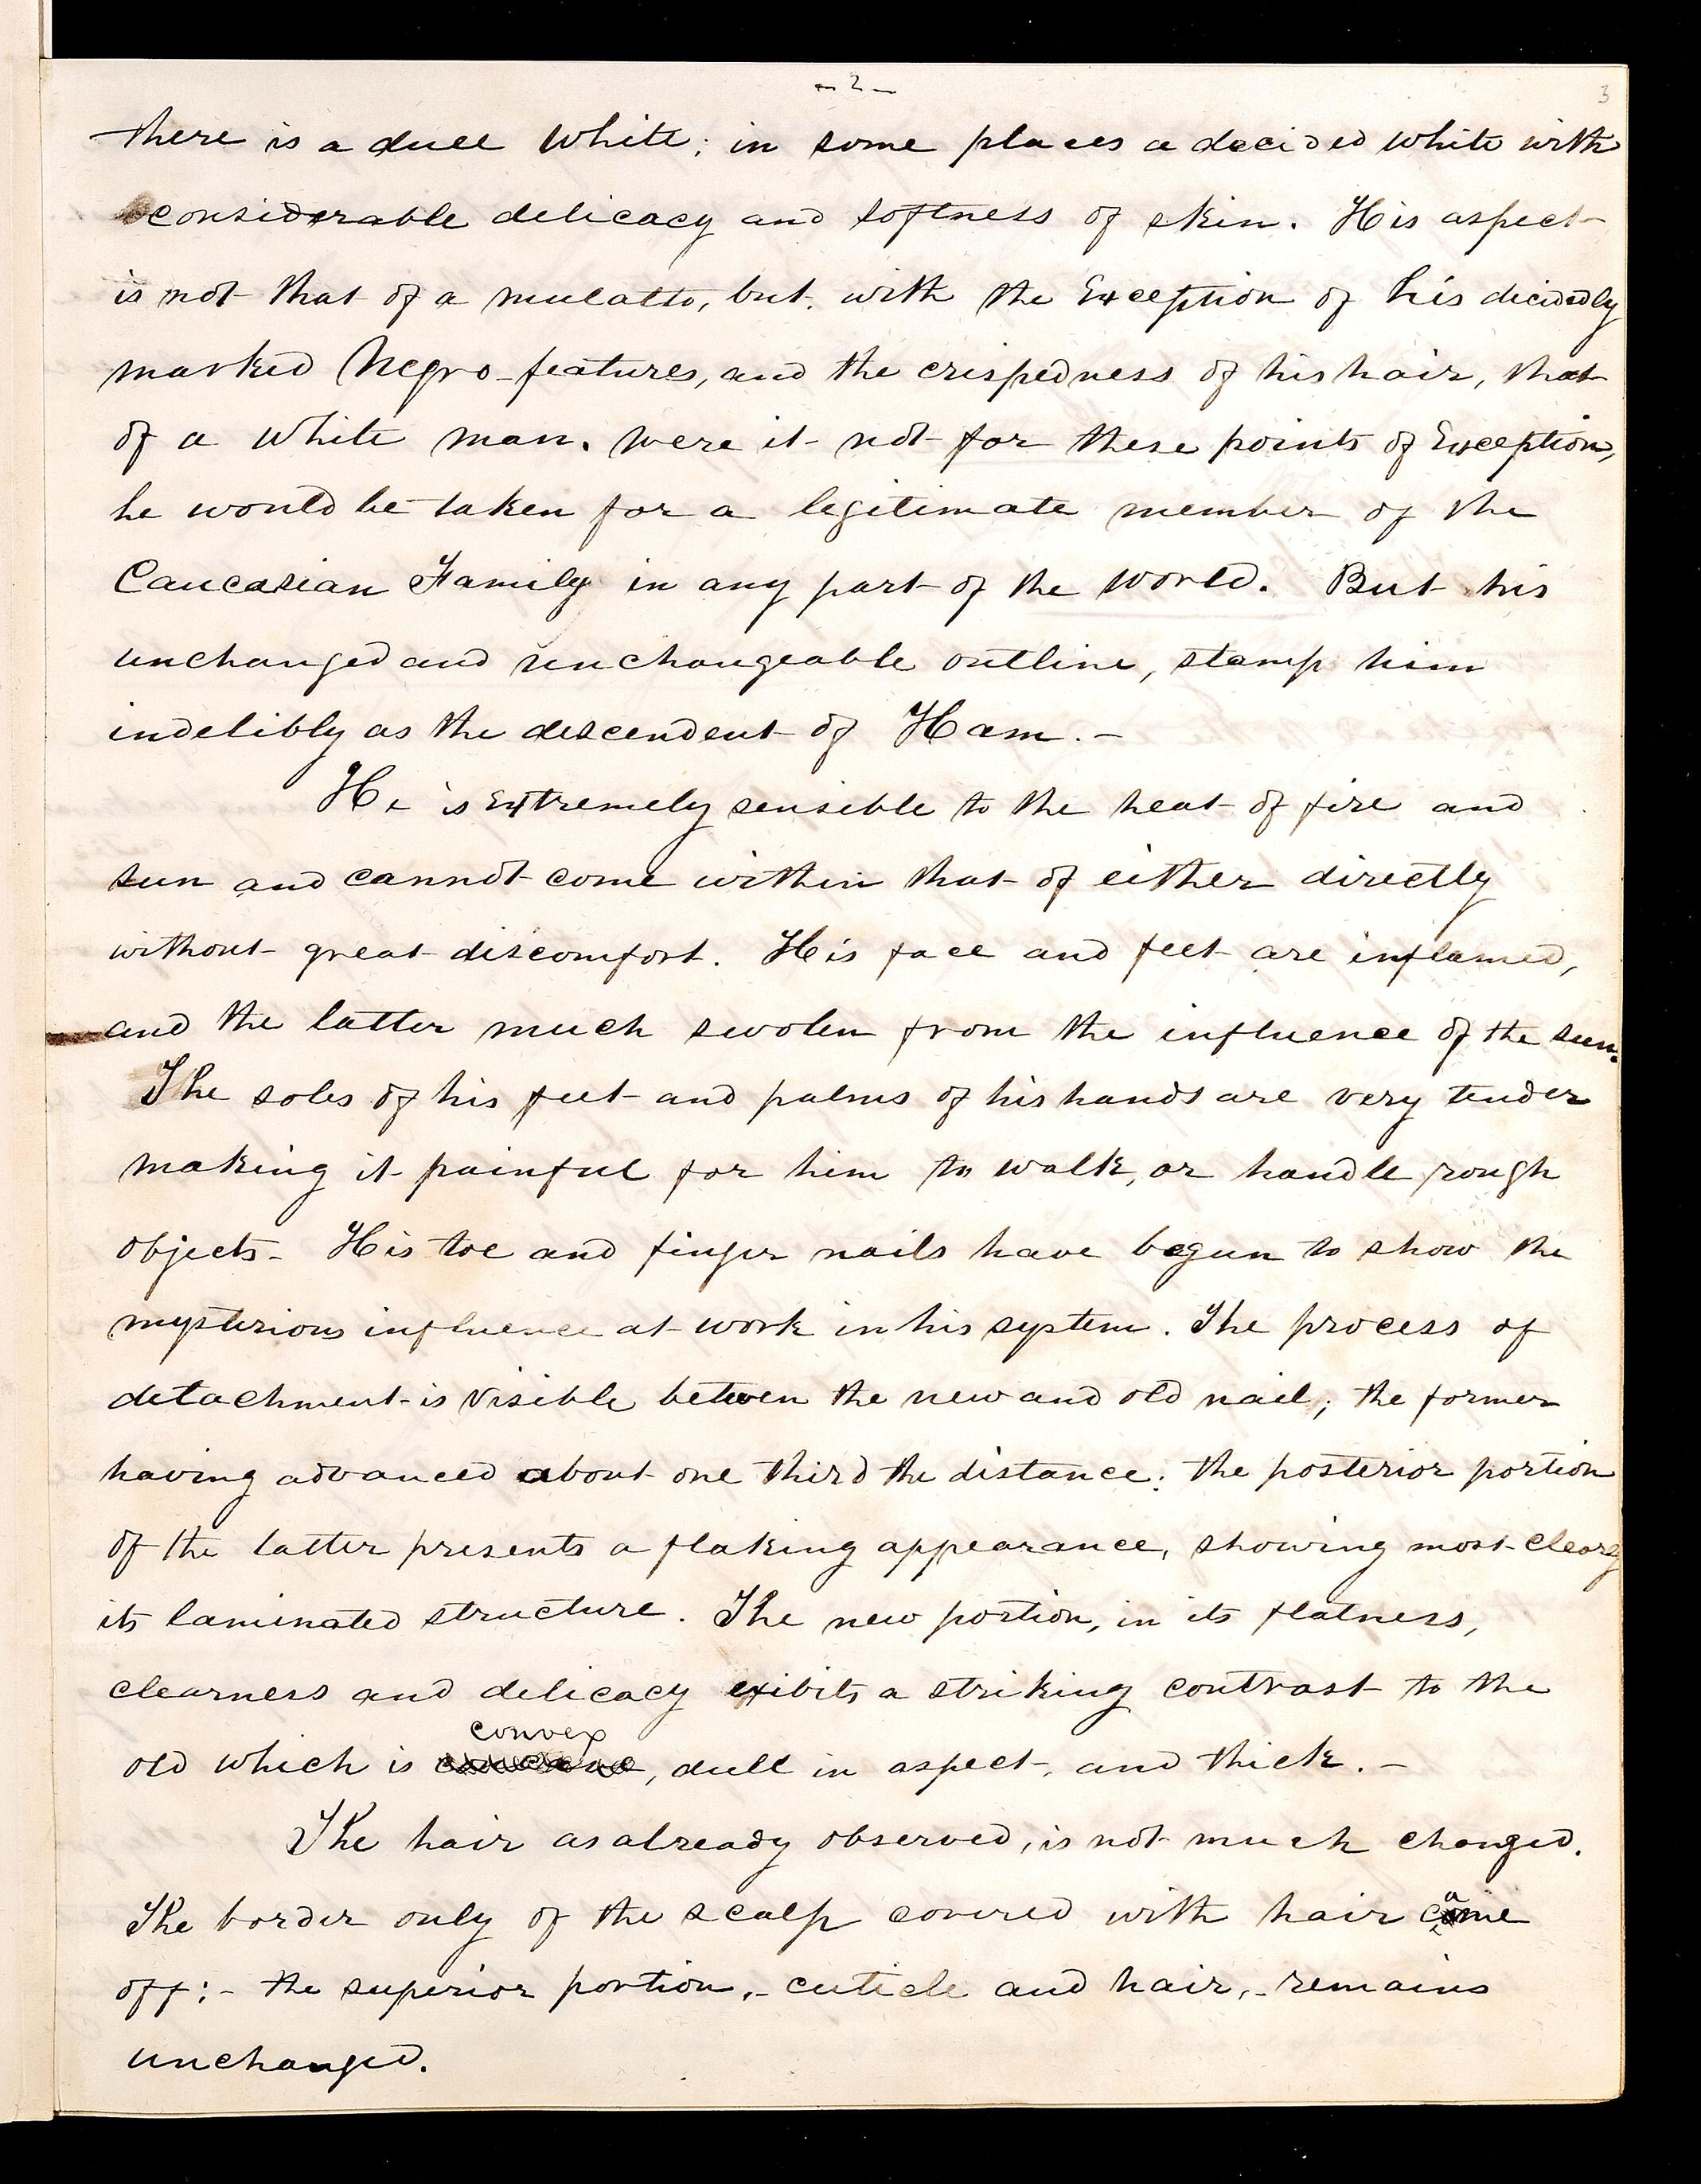 - 2 -
3
there is a dull white; in some places a decided white with
considerable delicacy and softness of skin. His aspect
is not that of a mulatto, but, with the Exception of his decidedly
marked Negro-features, and the crispedness of his hair, that
of a white man. Were it not for these points of Exception,
he would be taken for a legitimate member of the
Caucasian Family in any part of the world. But his
unchanged and unchangeable outline, stamp him
indelibly as the descendent of Ham. -
He is Extremely sensible to the heat of fire and
sun and cannot come within that of either directly
without great discomfort. His face and feet are inflamed,
and the latter much swolen from the influence of the sun.
The soles of his feet and palms of his hands are very tender
making it painful for him to walk, or handle rough
objects - His toe and finger nails have begun to show the
mysterious influence at work in his system. The process of
detachment is visible between the new and old nail; the former
having advanced about one third the distance: the posterior portion
of the latter presents a flaking appearance, showing most clearly
its laminated structure. The new portion, in its flatness,
clearness and delicacy exibits a striking contrast to the
convex
old which is , dull in aspect, and thick. -
The hair as already observed, is not much changed.
The border only of the scalp covered with hair came
off: - the superior portion, - cuticle and hair, - remains
unchanged.